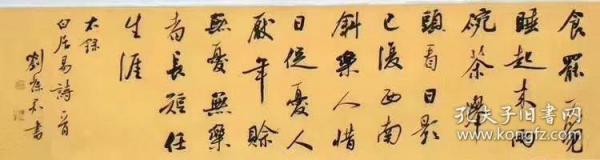 食罷一覺
睡起来两
碗茶舉
頭看日影
已復西南
斜樂人惜
日促憂人
厭年賒
無憂無樂
者長短任
生涯
録
白居易詩一首
劉書
孔夫子旧书网
www.kongfz.com